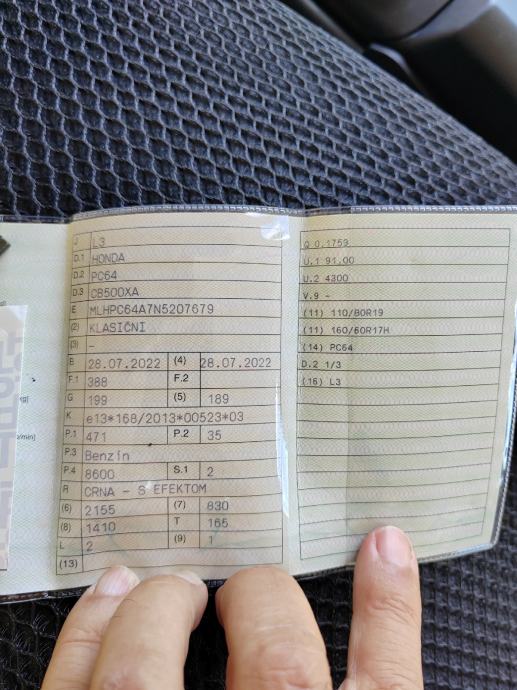 J L3
D.1 HONDA
D.2 PC64
D.3 CB500XA
E MLHPC64A7N5207679
(2) KLASIČNI
(3) -
B 28.07.2022 (4) 28.07.2022
F.1 388 F.2
G 199 (5) 189
K e13*168/2013*00523*03
P.1 471 P.2 35
P.3 Benzin
P.4 8600 S.1 2
R CRNA - S EFEKTOM
(6) 2155 (7) 830
(8) 1410 T 165
L 2 (9) 1
(13)
Q 0.1759
U.1 91.00
U.2 4300
V.9 -
(11) 110/80R19
(11) 160/60R17H
(14) PC64
D.2 1/3
(16) L3